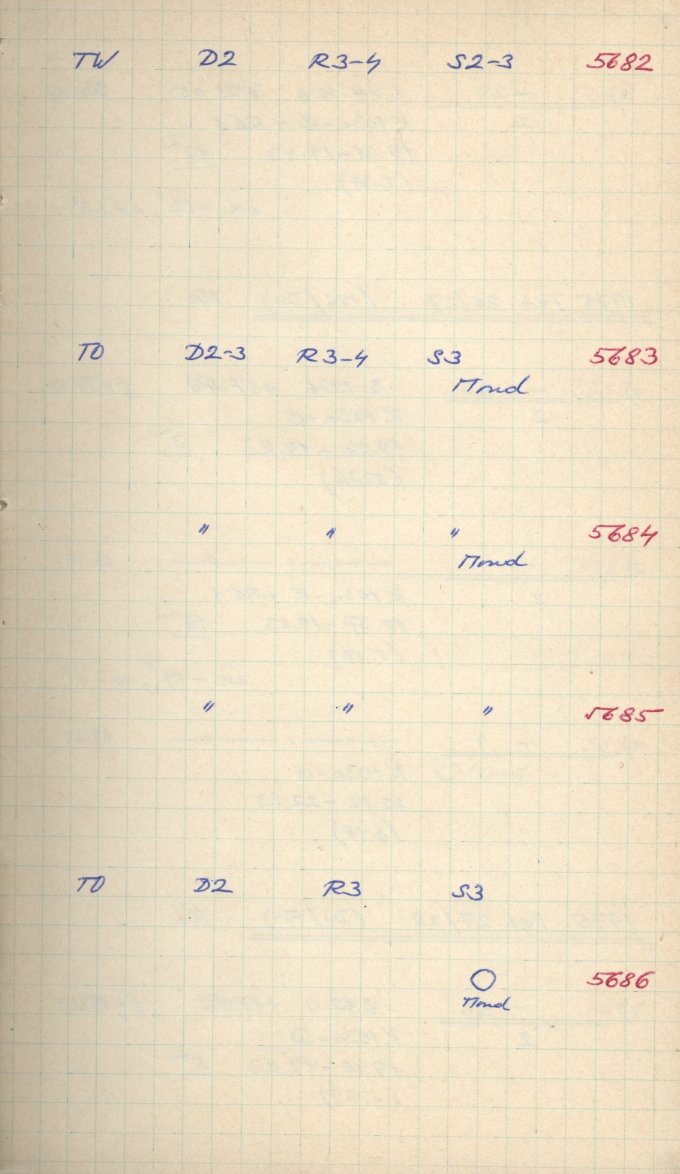 TW D2 R3-4 S2-3 5682
TO D2-3 R3-4 S3 5683
Mond
" " " 5684
Mond
" " " 5685
TO D2 R3 S3
5686
Mond